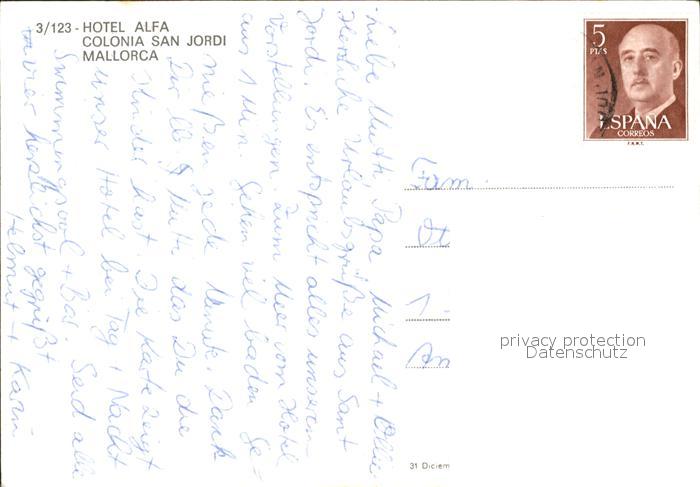 3/123 - HOTEL ALFA
COLONIA SAN JORDI
MALLORCA
5
PTAS
ESPAÑA
CORREOS
F.N.M.T.
Liebe Mutti, Papa, Michael + Ollie
Herzliche Urlaubsgrüße aus Sant
Jordi. Es entspricht alles unseren
Vorstellungen. Zum Meer vom Hotel
aus 1 Min. Gehen viel baden Ge-
nießen jede Minute. Dank
Dir lb. Mutti, das Du die
Kinder hast. Die Karte zeigt
unser Hotel bei Tag + Nacht
Swimmingpool + Bar. Seid alle
vier herzlichst gegrüßt
Helmut + Karin
Fam.
privacy protection
Datenschutz
31 Diciem